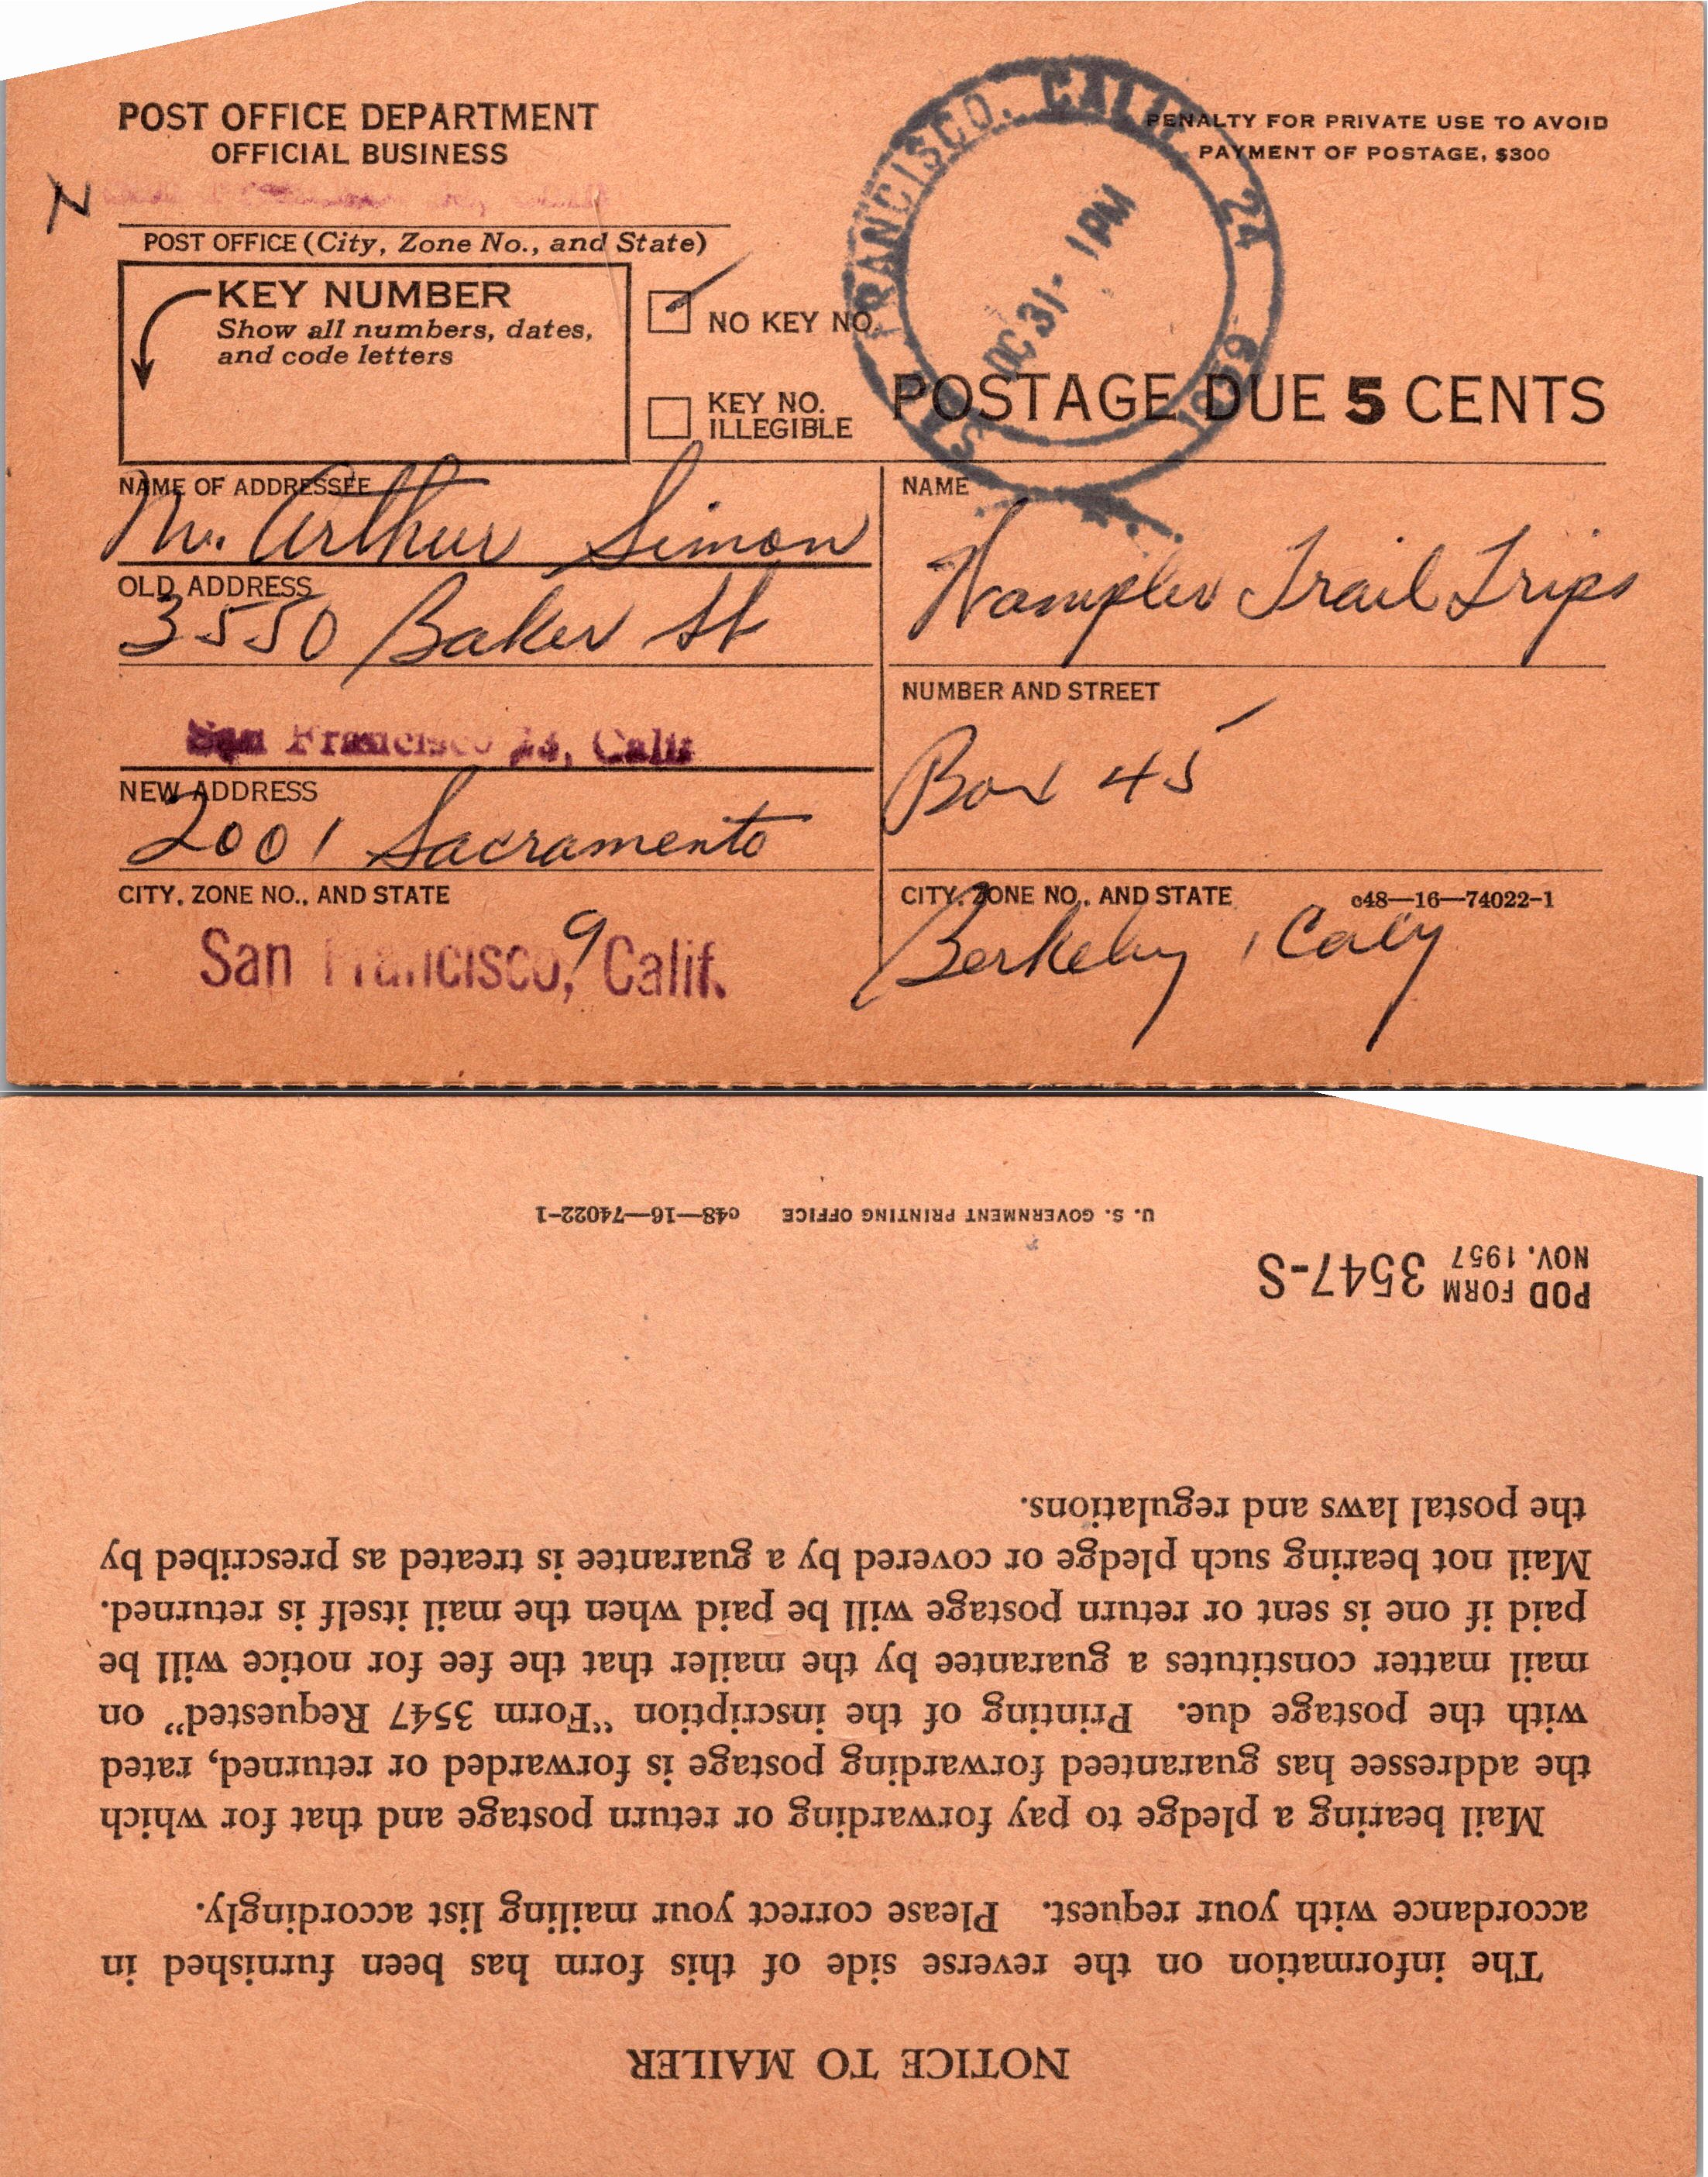 POST OFFICE DEPARTMENT
OFFICIAL BUSINESS
PENALTY FOR PRIVATE USE TO AVOID
PAYMENT OF POSTAGE, $300
N
POST OFFICE (City, Zone No., and State)
KEY NUMBER
Show all numbers, dates,
and code letters
NO KEY NO.
KEY NO.
ILLEGIBLE
FRANCISCO, CALIF. 24
1959
31- 1 PM
POSTAGE DUE 5 CENTS
NAME OF ADDRESSEE
Mr. Arthur Simon
OLD ADDRESS
3550 Baker St
San Francisco 23, Calif
NEW ADDRESS
2001 Sacramento
CITY, ZONE NO., AND STATE
San Francisco, 9 Calif.
NAME
Wampler Trail Trips
NUMBER AND STREET
Box 45
CITY, ZONE NO., AND STATE
c48—16—74022-1
Berkeley, Calif
NOTICE TO MAILER
The information on the reverse side of this form has been furnished in
accordance with your request. Please correct your mailing list accordingly.
Mail bearing a pledge to pay forwarding or return postage and that for which
the addressee has guaranteed forwarding postage is forwarded or returned, rated
with the postage due. Printing of the inscription "Form 3547 Requested" on
mail matter constitutes a guarantee by the mailer that the fee for notice will be
paid if one is sent or return postage will be paid when the mail itself is returned.
Mail not bearing such pledge or covered by a guarantee is treated as prescribed by
the postal laws and regulations.
POD FORM 3547-S
NOV. 1957
U. S. GOVERNMENT PRINTING OFFICE c48—16—74022-1